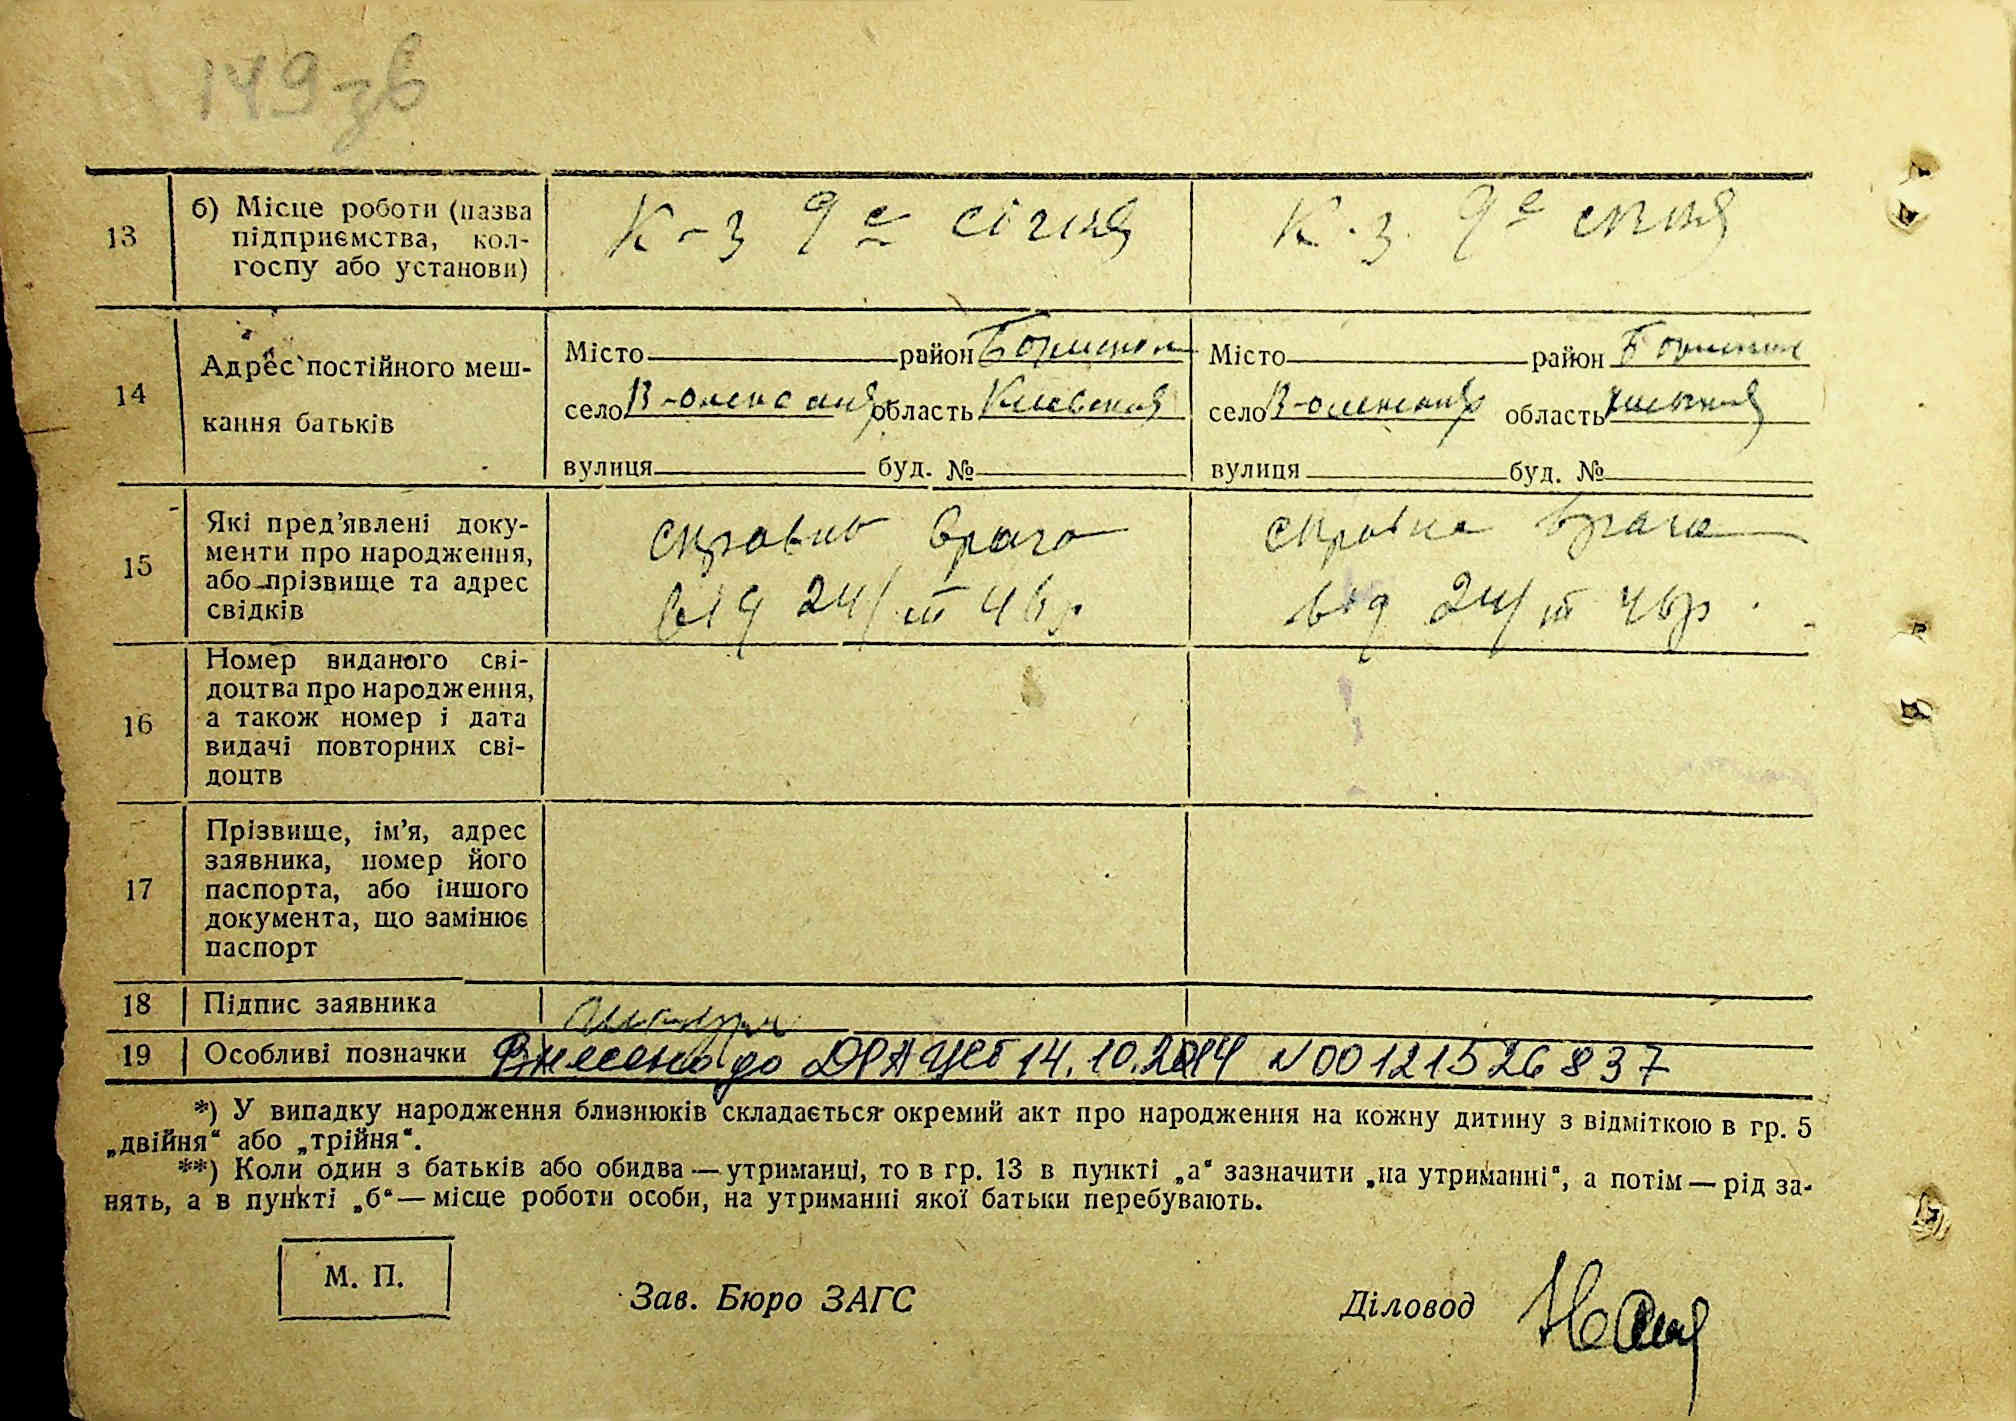 149 зв
13
б) Місце роботи (назва
підприємства, кол-
госпу або установи)
К-з 9е січня
К-з 9е січня
14
Адрес постійного меш-
кання батьків
Місто район Бориспол
село В-Олександр область Київська
вулиця буд. №
Місто район Борispіль
село В-Олександр область
вулиця буд. №
15
Які пред'явлені доку-
менти про народження,
або прізвище та адрес
свідків
справка врача
від 24/III 46р
справка врача
від 24/III 46р.
16
Номер виданого сві-
доцтва про народження,
а також номер і дата
видачі повторних сві-
доцтв
17
Прізвище, ім'я, адрес
заявника, номер його
паспорта, або іншого
документа, що замінює
паспорт
18
Підпис заявника
19
Особливі позначки
Внесено до ДРАЦСГ 14.10.2014 N00121526837
*) У випадку народження близнюків складається окремий акт про народження на кожну дитину з відміткою в гр. 5
„двійня“ або „трійня“.
**) Коли один з батьків або обидва — утриманці, то в гр. 13 в пункті „а“ зазначити „на утриманні“, а потім — рід за-
нять, а в пункті „б“ — місце роботи особи, на утриманні якої батьки перебувають.
М. П.
Зав. Бюро ЗАГС
Діловод